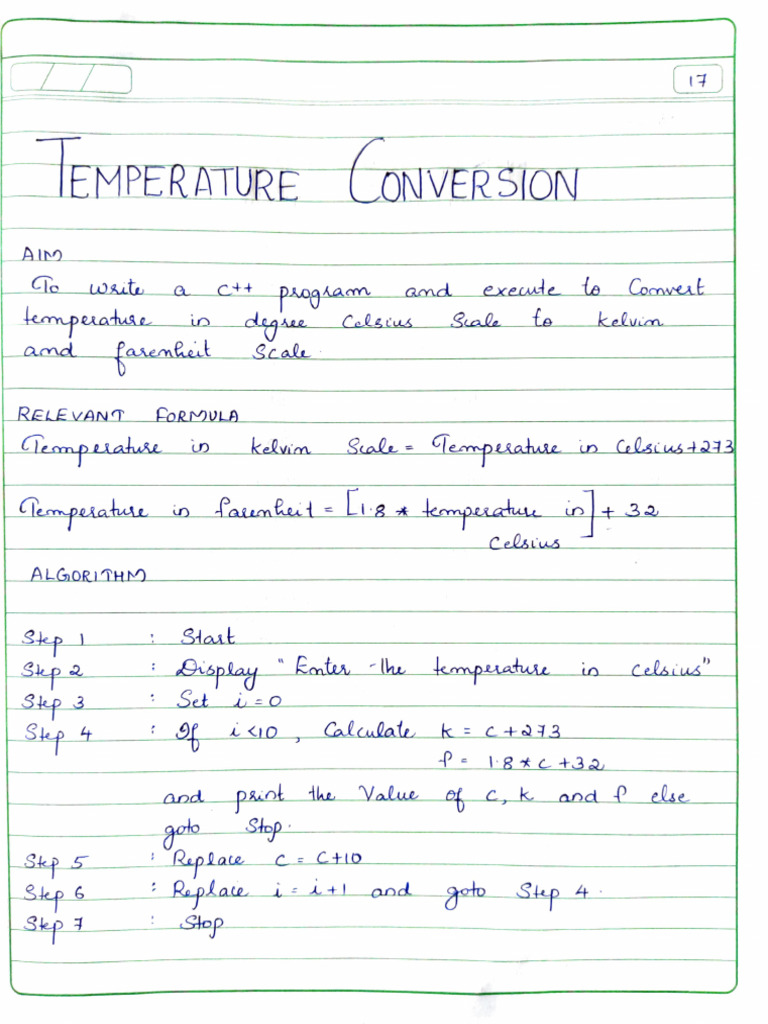 17
TEMPERATURE CONVERSION
AIM
To write a c++ program and execute to Convert
temperature in degree Celsius Scale to kelvin
and farenheit Scale.
RELEVANT FORMULA
Temperature in kelvin Scale = Temperature in Celsius+273
Temperature in farenheit = [1.8 * temperature in] + 32
Celsius
ALGORITHM
Step 1 : Start
Step 2 : Display "Enter the temperature in celsius"
Step 3 : Set i = 0
Step 4 : If i<10, Calculate k = c+273
f = 1.8*c+32
and print the Value of c, k and f else
goto Stop.
Step 5 : Replace c = c+10
Step 6 : Replace i = i+1 and goto Step 4.
Step 7 : Stop